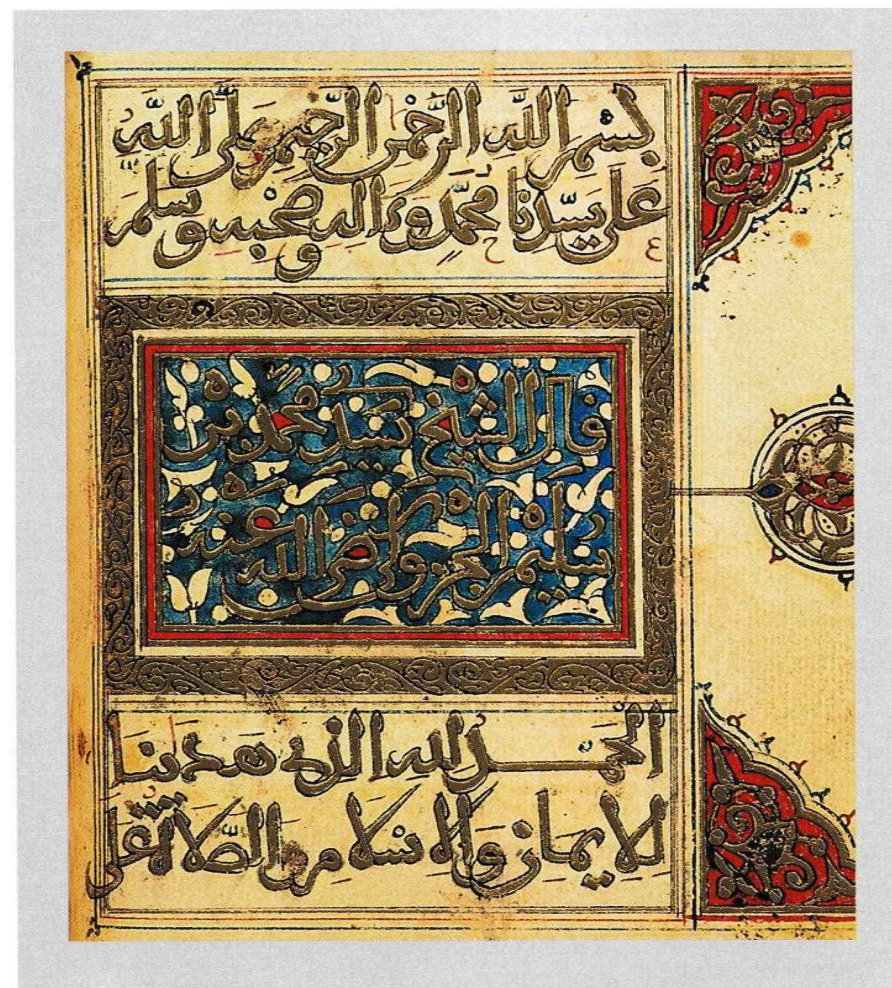 بسم الله الرحمن الرحيم صلى الله
على سيدنا محمد وءاله وصحبه وسلم
قال الشيخ سيد محمد بن
سليمن الجزولي رضي الله عنه
الحمد لله الذي هدينا
للايمان والاسلام والصلاة على